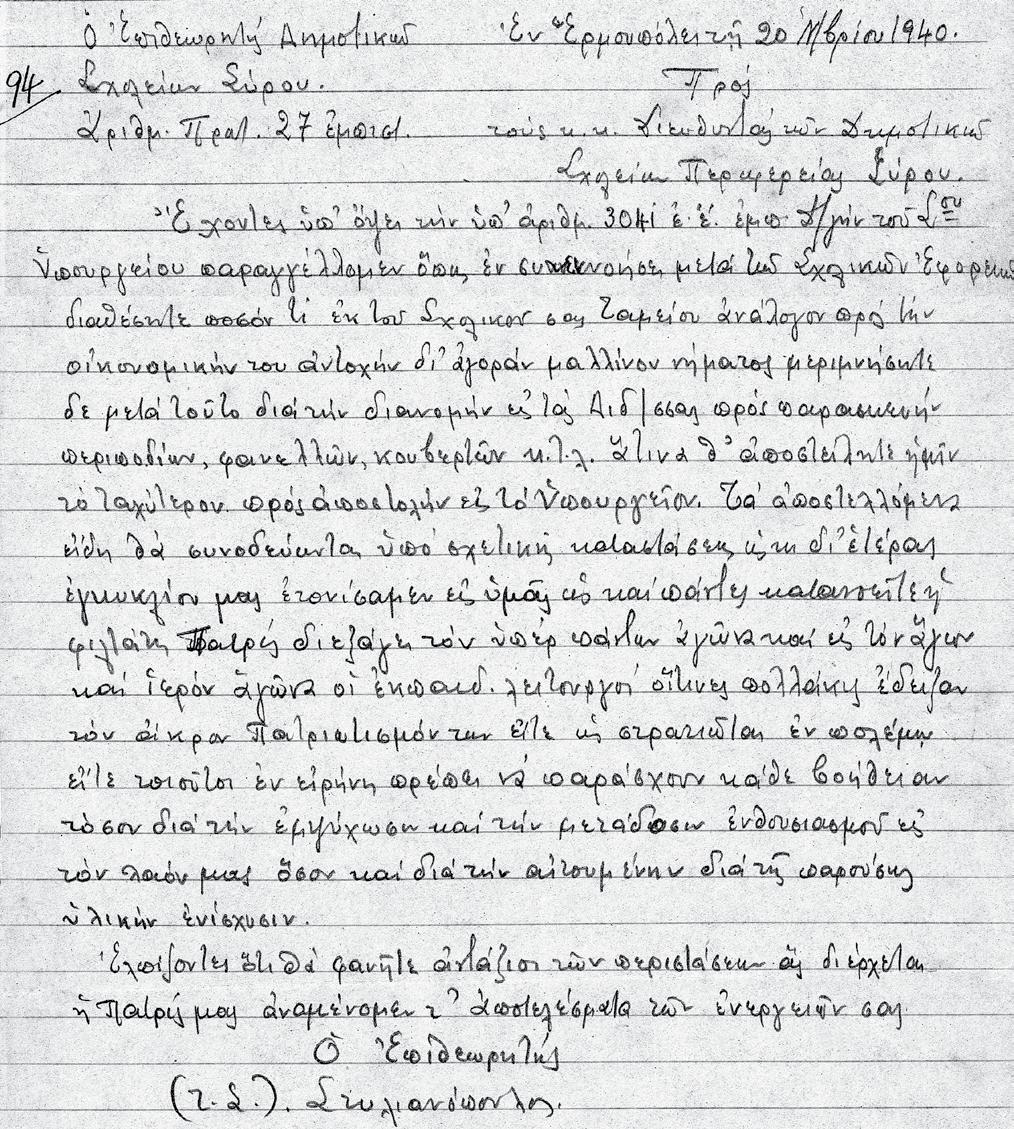 Ὁ Ἐπιθεωρητὴς Δημοτικῶν Ἐν Ἑρμουπόλει τῇ 20 Ν/βρίου 1940.
94 Σχολείων Σύρου. Πρός
Ἀριθμ. Πρωτ. 27 ἐμπιστ. τούς κ.κ. Διευθυντάς τῶν Δημοτικῶν
Σχολείων Περιφερείας Σύρου.
Ἔχοντες ὑπ' ὄψει τήν ὑπ' ἀριθμ. 3041 ἐ.ἔ. ἐμπ. Δ/γήν τοῦ Σου
Ὑπουργείου παραγγέλλομεν ὅπως ἐν συνεννοήσει μετά τῶν Σχολικῶν Ἐφορειῶν
διαθέσητε ποσόν τι ἐκ τοῦ Σχολικοῦ σας Ταμείου ἀνάλογον πρός τήν
οἰκονομικήν του ἀντοχήν δι' ἀγοράν μαλλίνου νήματος μεριμνήσητε
δέ μετά τοῦτο διά τήν διανομήν εἰς τάς Διδ/σσας πρός παρασκευήν
περιποδίων, φανελλῶν, κουβερτῶν κ.τ.λ. ἅτινα θ' ἀποστείλητε ἡμῖν
τό ταχύτερον πρός ἀποστολήν εἰς τό Ὑπουργεῖον. Τά ἀποστελλόμενα
εἴδη θά συνοδεύωνται ὑπό σχετικῆς καταστάσεως ὡς κ δι' ἑτέρας
ἐγκυκλίου μας ἐτονίσαμεν εἰς ὑμᾶς ὡς καί πάντες κατανοεῖτε ἡ
φιλτάτη Πατρίς διεξάγει τόν ὑπέρ πάντων ἀγῶνα καί εἰς τόν ἅγιον
καί ἱερόν ἀγῶνα οἱ ἐκπαιδ. λειτουργοί οἵτινες πολλάκις ἔδειξαν
τόν ἄκρον Πατριωτισμόν των εἴτε ὡς στρατιῶται ἐν πολέμῳ
εἴτε τοιοῦτοι ἐν εἰρήνῃ πρέπει νά παράσχουν κάθε βοήθειαν
τόσον διά τήν ἐμψύχωσιν καί τήν μετάδοσιν ἐνθουσιασμοῦ εἰς
τόν λαόν μας ὅσον καί διά τήν αἰτουμένην διά τῆς παρούσης
ὑλικήν ἐνίσχυσιν.
Ἐλπίζοντες ὅτι θά φανῆτε ἀντάξιοι τῶν περιστάσεων ἅς διέρχεται
ἡ Πατρίς μας ἀναμένομεν τ' ἀποτελέσματα τῶν ἐνεργειῶν σας
Ὁ Ἐπιθεωρητής
(Τ.Σ.). Στυλιανόπουλος.